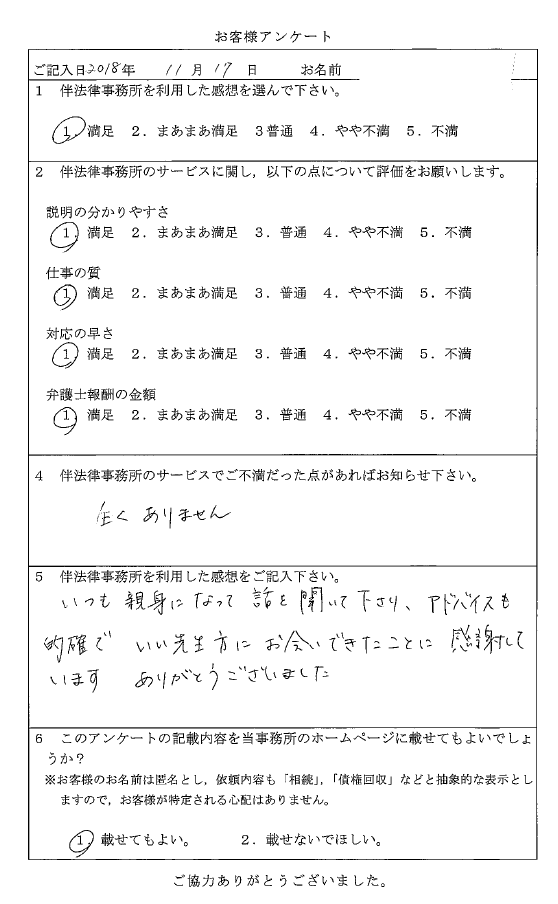 お客様アンケート
ご記入日2018年 11月17日 お名前
1 伴法律事務所を利用した感想を選んで下さい。
1. 満足 2. まあまあ満足 3 普通 4. やや不満 5. 不満
2 伴法律事務所のサービスに関し,以下の点について評価をお願いします。
説明の分かりやすさ
1. 満足 2. まあまあ満足 3. 普通 4. やや不満 5. 不満
仕事の質
1 満足 2. まあまあ満足 3. 普通 4. やや不満 5. 不満
対応の早さ
1 満足 2. まあまあ満足 3. 普通 4. やや不満 5. 不満
弁護士報酬の金額
1 満足 2. まあまあ満足 3. 普通 4. やや不満 5. 不満
4 伴法律事務所のサービスでご不満だった点があればお知らせ下さい。
全く ありません
5 伴法律事務所を利用した感想をご記入下さい。
いつも 親身になって 話を聞いて下さり、アドバイスも
的確で いい先生方に お会いできたことに 感謝して
います ありがとうございました
6 このアンケートの記載内容を当事務所のホームページに載せてもよいでしょ
うか?
※お客様のお名前は匿名とし,依頼内容も「相続」,「債権回収」などと抽象的な表示とし
ますので,お客様が特定される心配はありません。
1. 載せてもよい。 2. 載せないでほしい。
ご協力ありがとうございました。